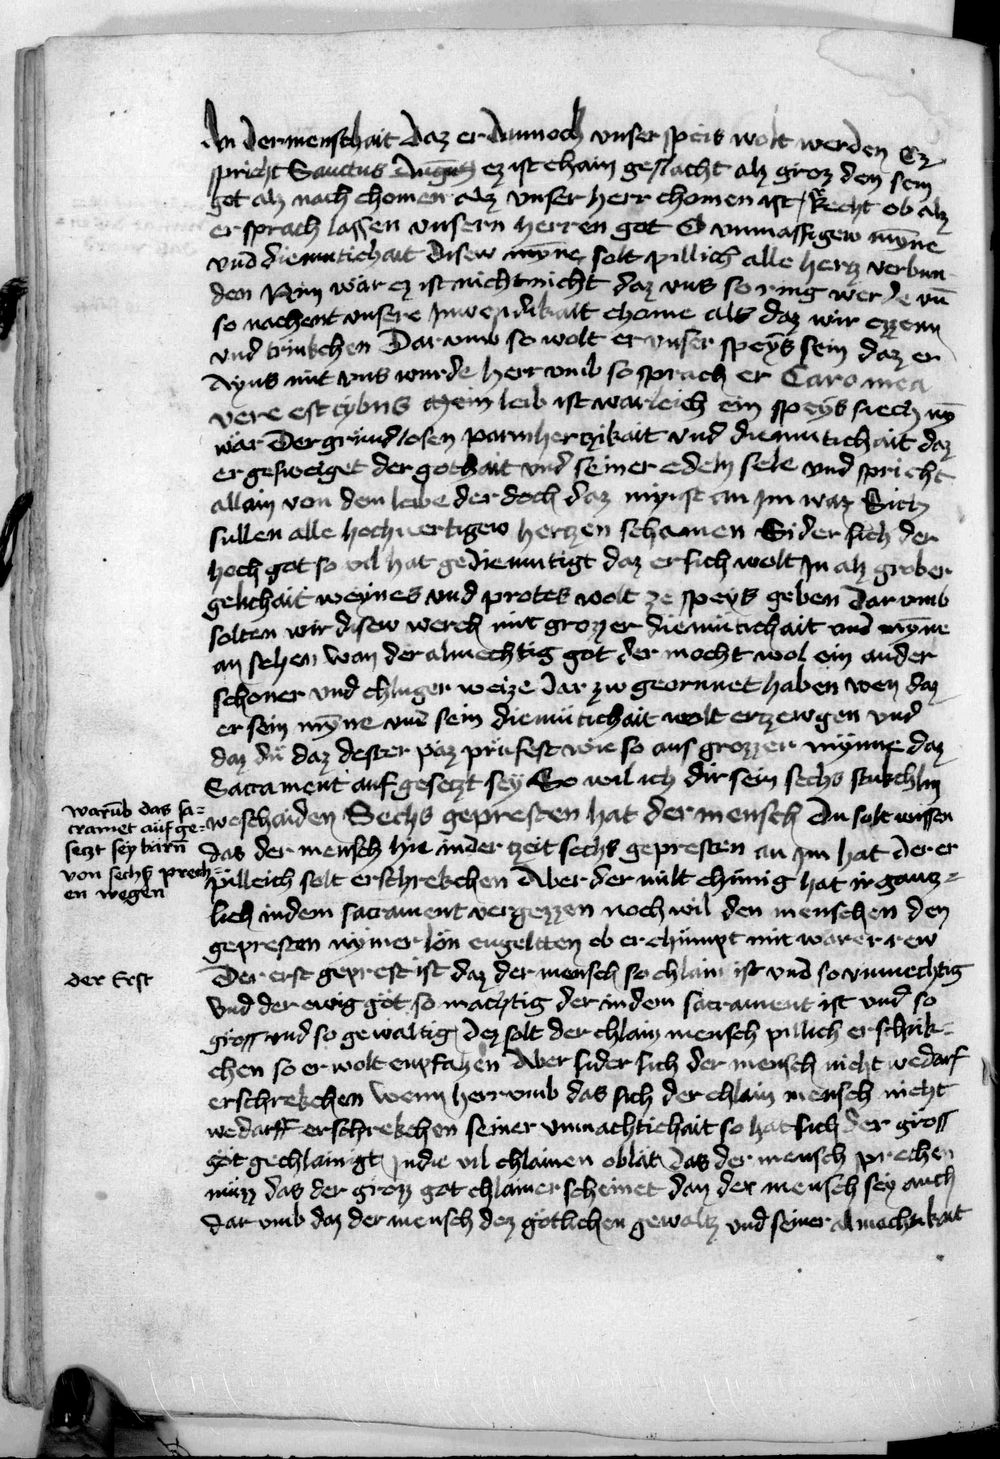 An der menschait daz er dannoch unser speis wolt werden Ez
spricht Sanctus Augustus ez ist chain geslacht alz groz den sein
got alz nach chomen alz unser herr chomen ist Recht ob alz
er sprach lassen unsern herren got O unmassigew mÿne
und diemutichait disew mÿne solt pillich alle hertz verbun
den Nim wär ez ist nicht nicht daz uns so ring werde uñ
so nachent unsere Inwendikait chome als daz wir ezzenn
und trinkchen Dar umb so wolt er unser speÿs sein daz er
Ayns mit uns wurde herr umb so sprach er Caro mea
vere est cybus Mein leib ist warleich ein speÿs siech nÿ
wär Der grundlosen parmhertzikait und diemutichait daz
er gesweiget der gothait und seiner edeln sele und spricht
allain von dem leibe der doch daz mÿnst an Im waz Sich
sullen alle hochvertigew hertzen schamen Sider sich der
hoch got so vil hat gediemutigt daz er sich wolt In alz grober
gelichait weÿnes und protes wolt ze speÿs geben Dar umb
solten wir disew werch mit grozzer diemutichait und mÿne
an sehen Wan der almechtig got der mocht wol ein ander
schoner und chluger weize dar zw geornnet haben wen daz
er sein mÿne und sein diemütichait wolt ertzewgen und
daz dü daz dester paz prüfest wie so aus grozzer mÿnne daz
Sacrament auf gesetzt seÿ So wil ich dir sein sechs stukchlin
weschaiden Sechs gepresten hat der mensch Du solt wissen
das der mensch hie in der tzeit sechs gepresten an Im hat Der er
pilleich solt erschrekchen Aber der milt chünig hat ir gantz=
lich in dem sacrament vergezzen noch wil den menschen den
gepresten nÿmer lön engeltten ob er chümpt mit warer rew
Der erst geprest ist daz der mensch so chlain ist und so unmechtig
Und der ewig got so mächtig der in dem sacrament ist und so
gross und so gewaltig Dez solt der chlain mensch pillich erschrik=
chen so er wolt enpfahen Aber sider sich der mensch nicht wedarf
erschrekchen Wenn herr umb das sich der chlain mensch nicht
wedarff erschrekchen seiner unmachtichait so hat sich der gross
got gechlainigt In die vil chlainen oblat Das der mensch sprechen
müzz das der grozz got chlainer scheinet dan der mensch sey auch
Dar umb daz der mensch dez götlichen gewaltz und seiner Almachtikait
warüb das sa=
crament aüf ge=
setzt seÿ darü
von sechs prech=
en wegen
der Erst